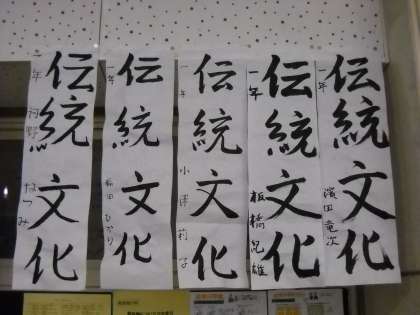 伝統文化
一年
濱田竜次
伝統文化
一年
板橋紀雄
伝統文化
一年
小澤莉子
伝統文化
年
ひかり
伝統文化
二年
河野
なつみ